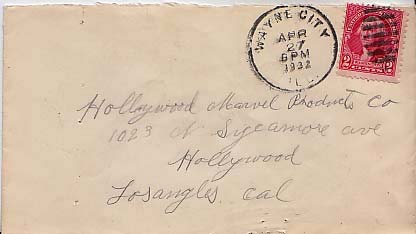 WAYNE CITY
APR
27
6PM
1932
ILL.
2 2
Hollywood Marvel Products Co
1023 N Sycamore ave
Hollywood
Losangles. Cal